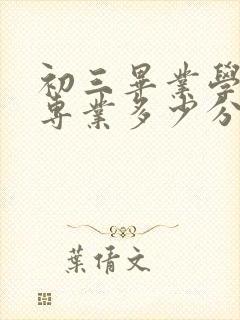 初三畢業學
專業多少分
葉倩文